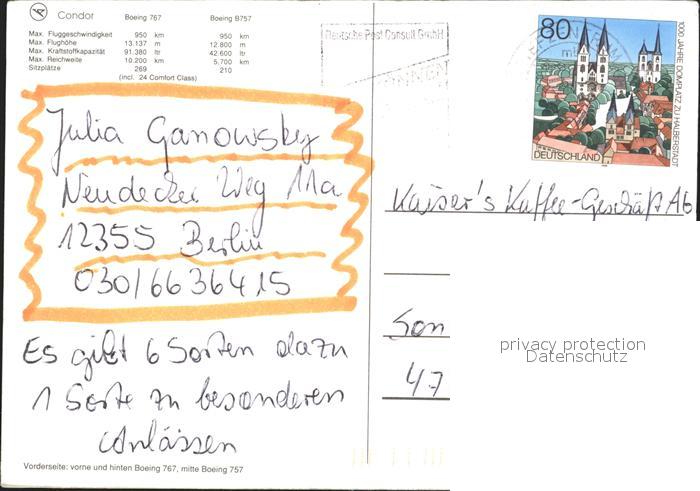 Condor Boeing 767 Boeing B757
Max. Fluggeschwindigkeit 950 km 950 km
Max. Flughöhe 13.137 m 12.800 m
Max. Kraftstoffkapazität 91.380 ltr 42.600 ltr
Max. Reichweite 10.200 km 5.700 km
Sitzplätze 269 210
(incl. 24 Comfort Class)
Deutsche Post Consult GmbH
80
1000 JAHRE DOMPLATZ ZU HALBERSTADT
DEUTSCHLAND
Julia Ganowsky
Neudecker Weg 11a
12355 Berlin
030/6636415
Kaiser's Kaffee-Geschäft AG
Son
47
privacy protection
Datenschutz
Es gibt 6 Sorten dazu
1 Sorte zu besonderen
Anlässen
Vorderseite: vorne und hinten Boeing 767, mitte Boeing 757